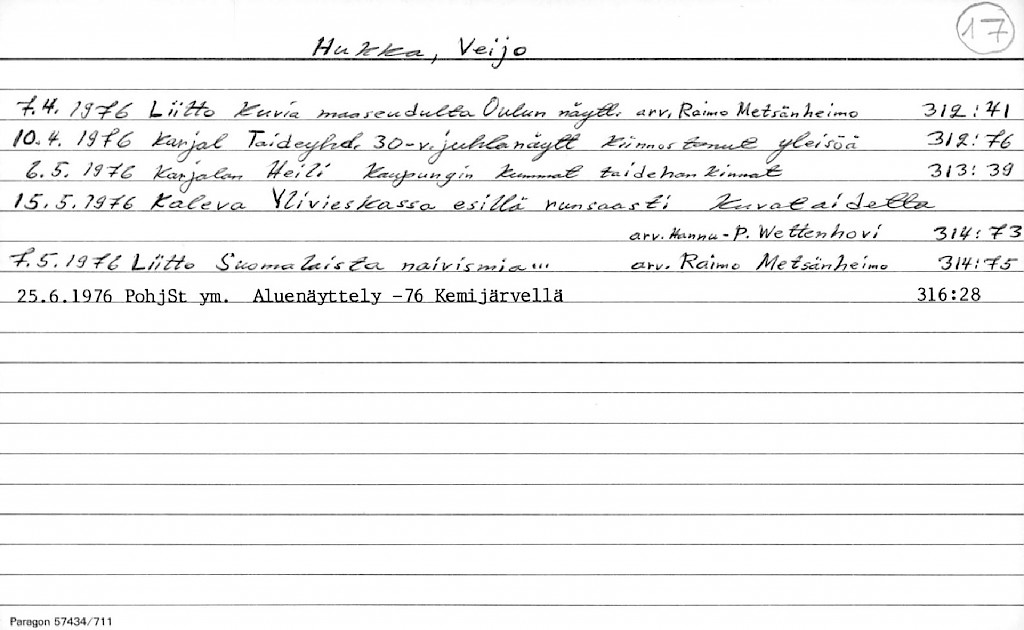 17
Hukka, Veijo
7.4. 1976 Liitto Kuvia maaseudulta Oulun näytt. arv. Raimo Metsänheimo 312:41
10.4. 1976 Karjal Taideyhd. 30-v. juhlanäytt kiinnostanut yleisöä 312:76
6.5. 1976 Karjalan Heili Kaupungin kummat taidehankinnat 313:39
15.5.1976 Kaleva Ylivieskassa esillä runsaasti kuvataidetta
arv. Hannu-P. Wettenhovi 314:73
7.5.1976 Liitto Suomalaista naivismia... arv. Raimo Metsänheimo 314:75
25.6.1976 PohjSt ym. Aluenäyttely -76 Kemijärvellä 316:28
Paragon 57434/711